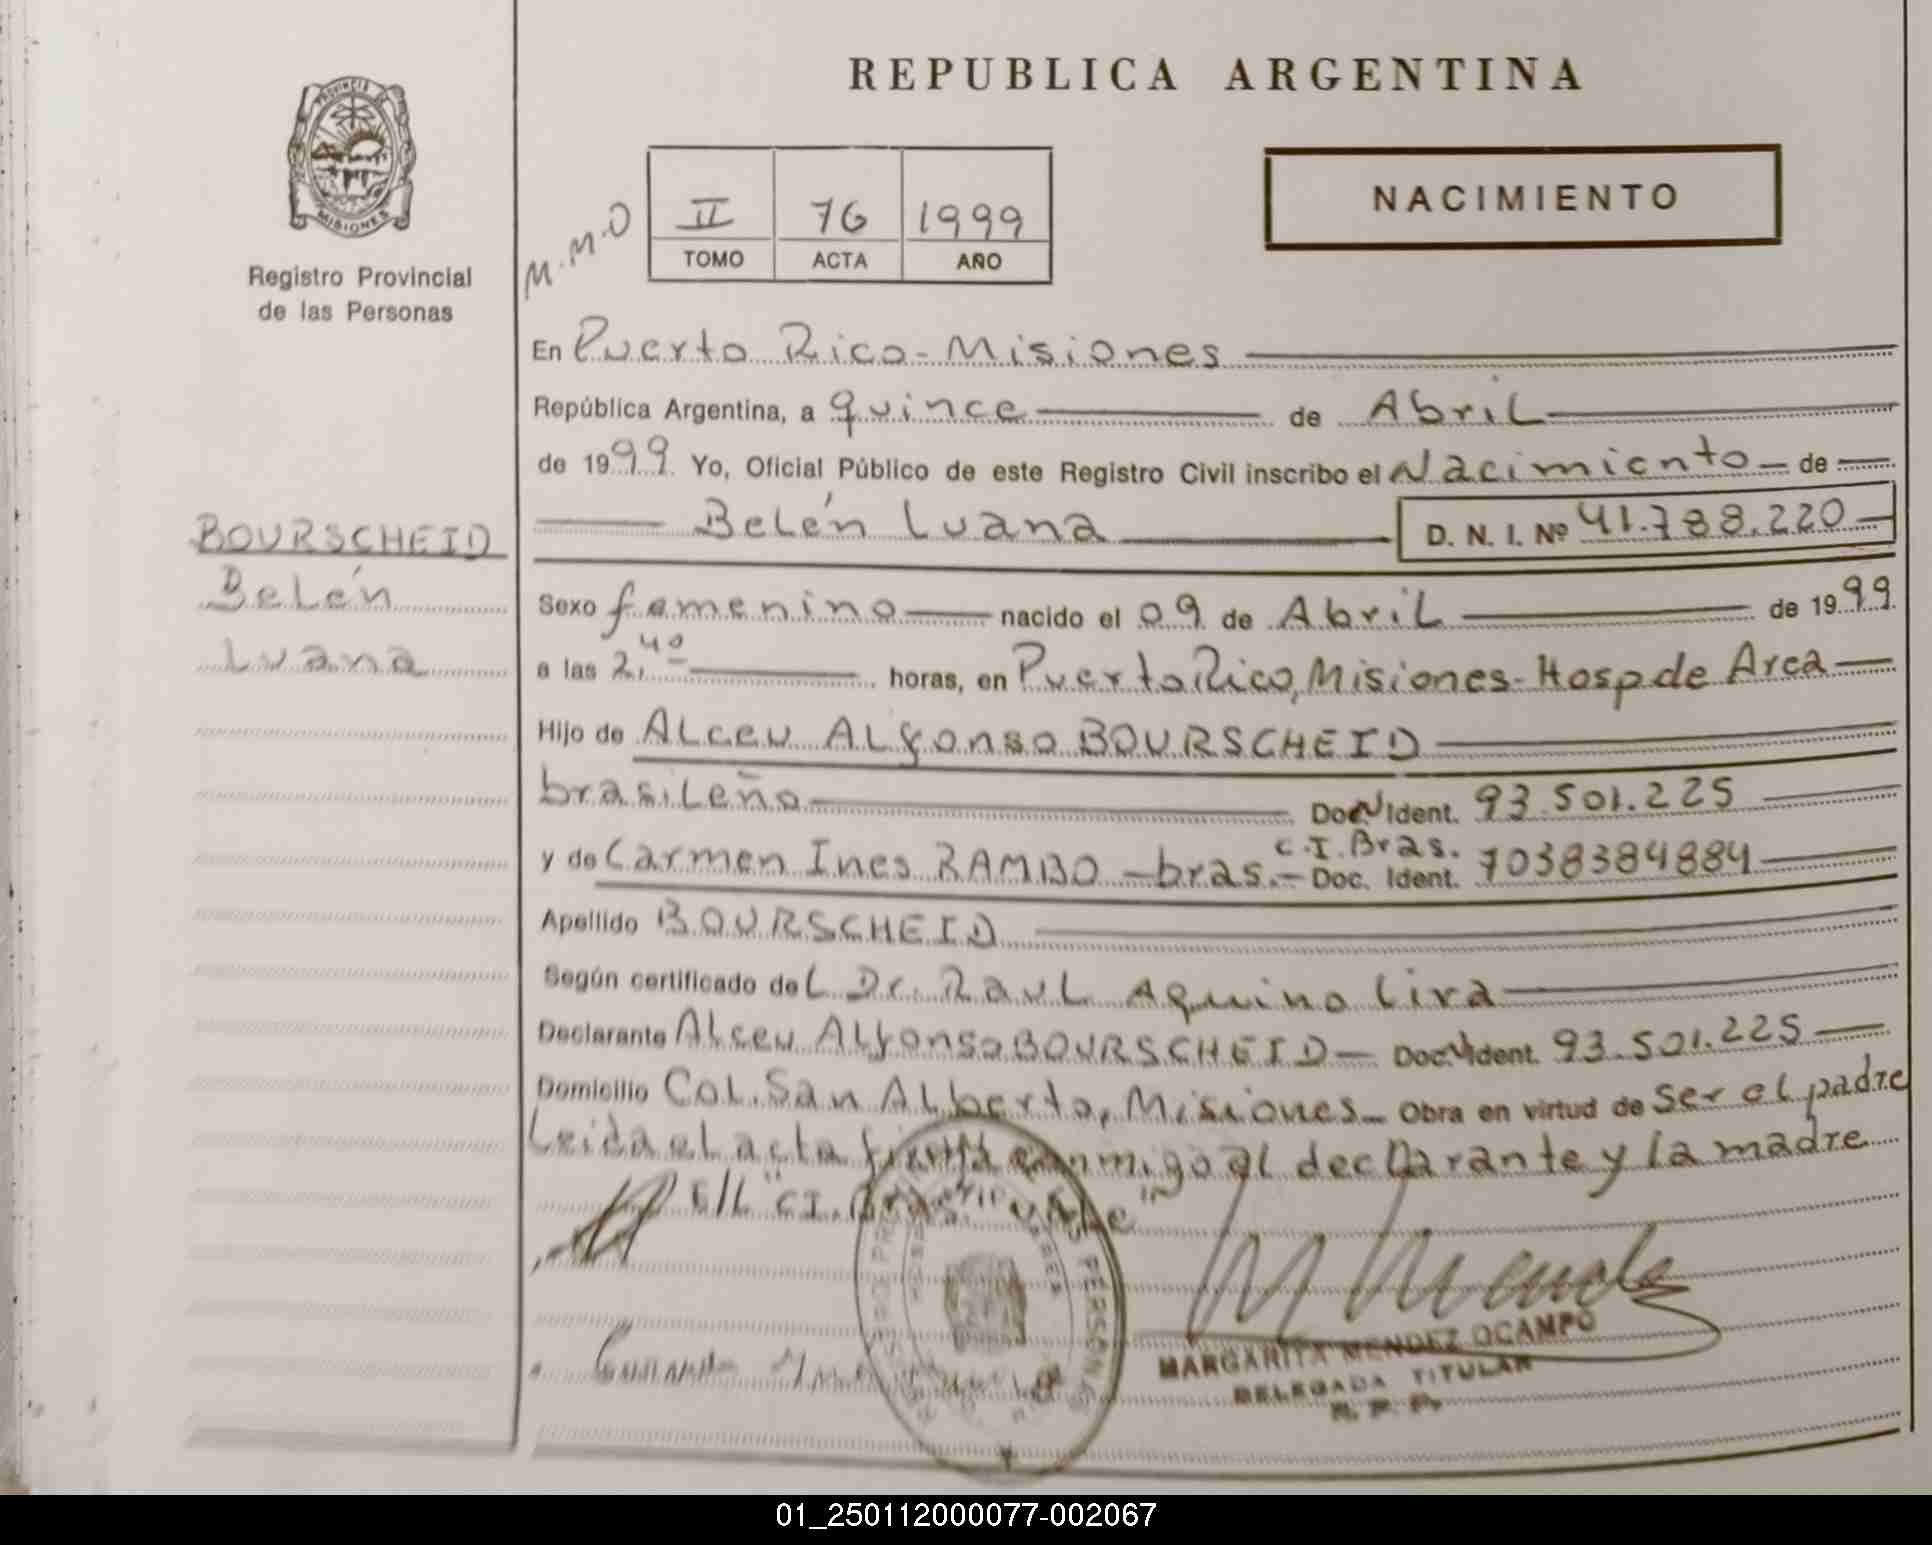 PROVINCIA DE
MISIONES
Registro Provincial
de las Personas
BOURSCHEID
Belén
Luana
REPUBLICA ARGENTINA
M.M.O
II 76 1999
TOMO ACTA AÑO
NACIMIENTO
En Puerto Rico - Misiones
República Argentina, a quince de Abril
de 1999 Yo, Oficial Público de este Registro Civil inscribo el Nacimiento de
Belén Luana D. N. I. Nº 41.788.220
Sexo femenino nacido el 09 de Abril de 1999
a las 2,40 horas, en Puerto Rico, Misiones - Hosp de Area
Hijo de Alceu Alfonso BOURSCHEID
brasileño Doc. Ident. 93.501.225
y de Carmen Ines RAMBO - bras. - C.I. Bras. Doc. Ident. 7038384884
Apellido BOURSCHEID
Según certificado del Dr. Raul Aquino Lira
Declarante Alceu Alfonso BOURSCHEID - Doc. Ident. 93.501.225
Domicilio Col. San Alberto, Misiones - Obra en virtud de ser el padre
Leida el acta firma conmigo el declarante y la madre
E/L "CI. Bras."
PERSONAS
MARGARITA MENDEZ OCAMPO
DELEGADA TITULAR
R. P. P.
01_250112000077-002067